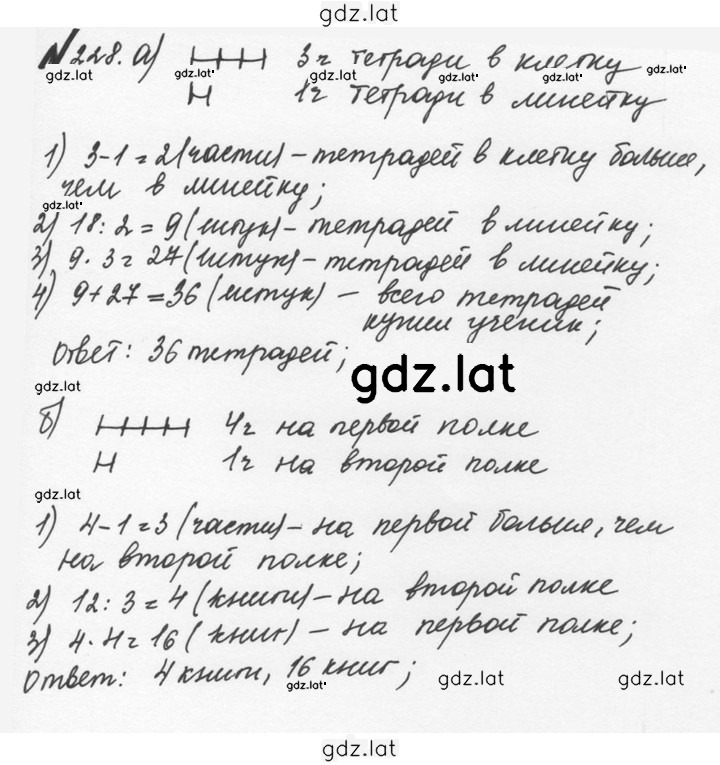 gdz.lat
№228. а) 3ч тетради в клетку
gdz.lat gdz.lat gdz.lat gdz.lat gdz.lat
1ч тетради в линейку
1) 3-1=2(части)-тетрадей в клетку больше,
чем в линейку;
gdz.lat
2) 18:2=9(штук)-тетрадей в линейку;
3) 9·3=27(штук)-тетрадей в линейку;
4) 9+27=36(штук) - всего тетрадей
купил ученик;
Ответ: 36 тетрадей;
gdz.lat
gdz.lat
б) 4ч на первой полке
1ч на второй полке
gdz.lat
1) 4-1=3(части)-на первой больше, чем
на второй полке;
2) 12:3=4(книги)-на второй полке
3) 4·4=16(книг)-на первой полке;
Ответ: 4 книги, 16 книг;
gdz.lat gdz.lat gdz.lat
gdz.lat